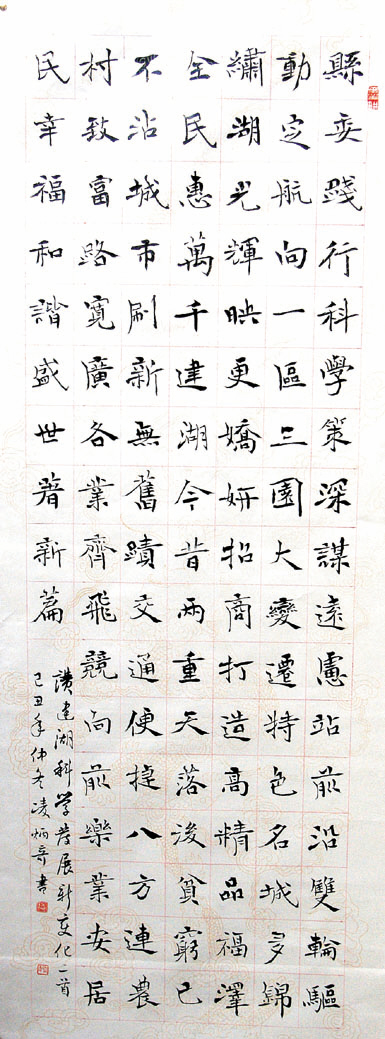 縣委踐行科學策深謀遠慮站前沿雙輪驅
動定航向一區三園大變遷特色名城多錦
繡湖光輝映更嬌妍招商打造高精品福澤
全民惠萬千建湖今昔兩重天落後貧窮已
不沾城市刷新無舊蹟交通便捷八方連農
村致富路寬廣各業齊飛競向前樂業安居
民幸福和諧盛世著新篇
讚建湖科學發展新變化一首
己丑年仲冬凌炳奇書